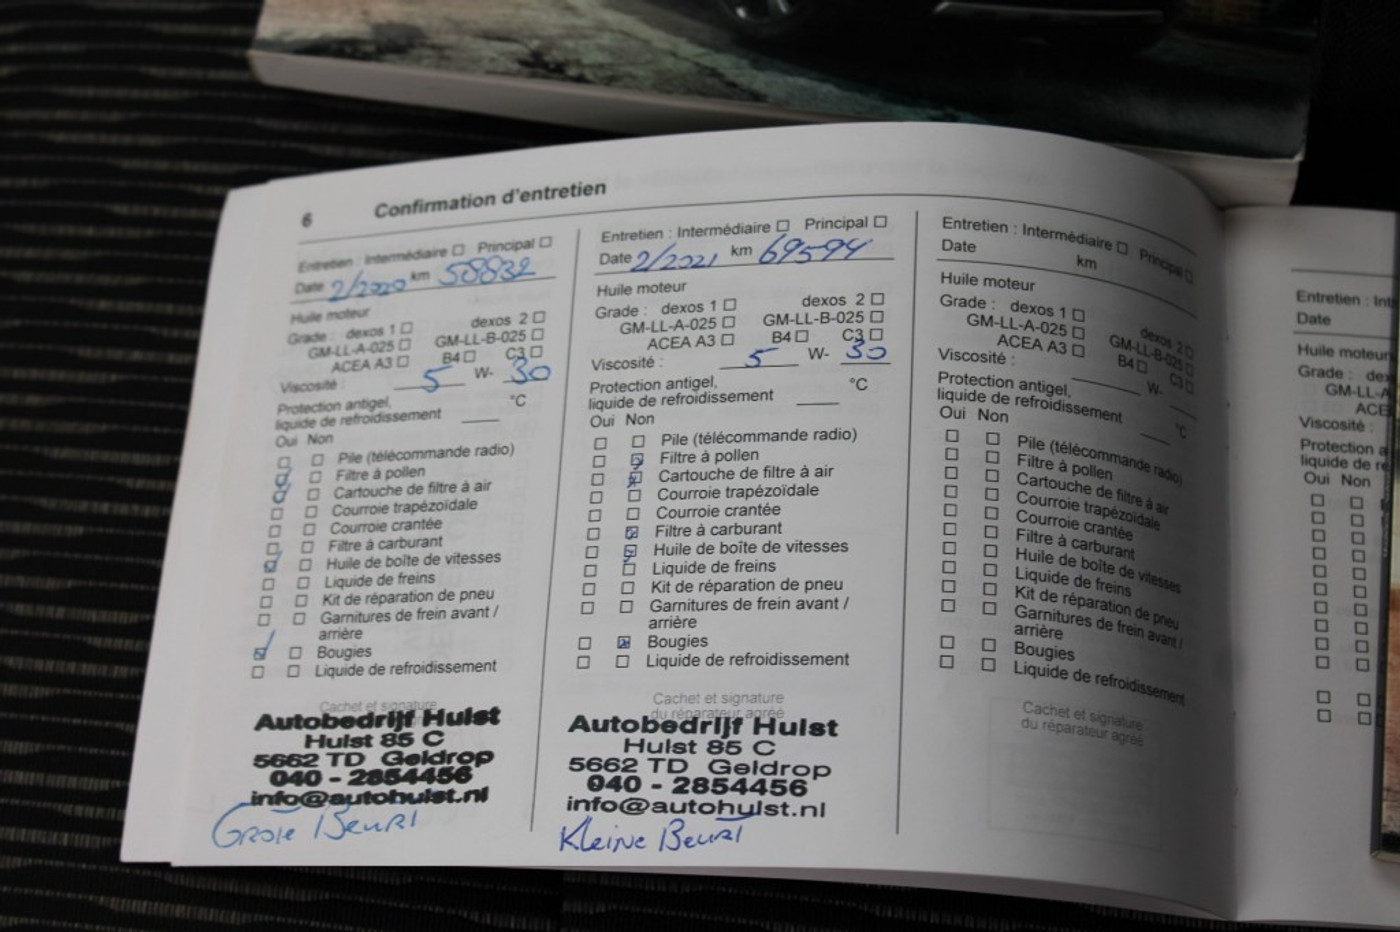 6 Confirmation d'entretien
Entretien : Intermédiaire ☐ Principal ☐
Date 2/2020 km 58832
Huile moteur
Grade : dexos 1 ☐ dexos 2 ☐
GM-LL-A-025 ☐ GM-LL-B-025 ☐
ACEA A3 ☐ B4 ☐ C3 ☐
Viscosité : 5 W- 30
Protection antigel,
liquide de refroidissement ____ °C
Oui Non
☐ ☐ Pile (télécommande radio)
☑ ☐ Filtre à pollen
☑ ☐ Cartouche de filtre à air
☐ ☐ Courroie trapézoïdale
☐ ☐ Courroie crantée
☐ ☐ Filtre à carburant
☑ ☐ Huile de boîte de vitesses
☐ ☐ Liquide de freins
☐ ☐ Kit de réparation de pneu
☐ ☐ Garnitures de frein avant /
arrière
☑ ☐ Bougies
☐ ☐ Liquide de refroidissement
Cachet et signature
Autobedrijf Hulst
Hulst 85 C
5662 TD Geldrop
040 - 2854456
info@autohulst.nl
Grote Beurt
Entretien : Intermédiaire ☐ Principal ☐
Date 2/2021 km 69594
Huile moteur
Grade : dexos 1 ☐ dexos 2 ☐
GM-LL-A-025 ☐ GM-LL-B-025 ☐
ACEA A3 ☐ B4 ☐ C3 ☐
Viscosité : 5 W- 30
Protection antigel,
liquide de refroidissement ____ °C
Oui Non
☐ ☐ Pile (télécommande radio)
☐ ☑ Filtre à pollen
☐ ☑ Cartouche de filtre à air
☐ ☐ Courroie trapézoïdale
☐ ☐ Courroie crantée
☐ ☑ Filtre à carburant
☐ ☑ Huile de boîte de vitesses
☐ ☐ Liquide de freins
☐ ☐ Kit de réparation de pneu
☐ ☐ Garnitures de frein avant /
arrière
☐ ☑ Bougies
☐ ☐ Liquide de refroidissement
Cachet et signature
du réparateur agréé
Autobedrijf Hulst
Hulst 85 C
5662 TD Geldrop
040 - 2854456
info@autohulst.nl
Kleine Beurt
Entretien : Intermédiaire ☐ Principal ☐
Date km
Huile moteur
Grade : dexos 1 ☐ dexos 2 ☐
GM-LL-A-025 ☐ GM-LL-B-025 ☐
ACEA A3 ☐ B4 ☐ C3 ☐
Viscosité : ____ W- ____
Protection antigel,
liquide de refroidissement ____ °C
Oui Non
☐ ☐ Pile (télécommande radio)
☐ ☐ Filtre à pollen
☐ ☐ Cartouche de filtre à air
☐ ☐ Courroie trapézoïdale
☐ ☐ Courroie crantée
☐ ☐ Filtre à carburant
☐ ☐ Huile de boîte de vitesses
☐ ☐ Liquide de freins
☐ ☐ Kit de réparation de pneu
☐ ☐ Garnitures de frein avant /
arrière
☐ ☐ Bougies
☐ ☐ Liquide de refroidissement
Cachet et signature
du réparateur agréé
Entretien : Int
Date
Huile moteur
Grade : dex
GM-LL-A
ACE
Viscosité :
Protection a
liquide de re
Oui Non